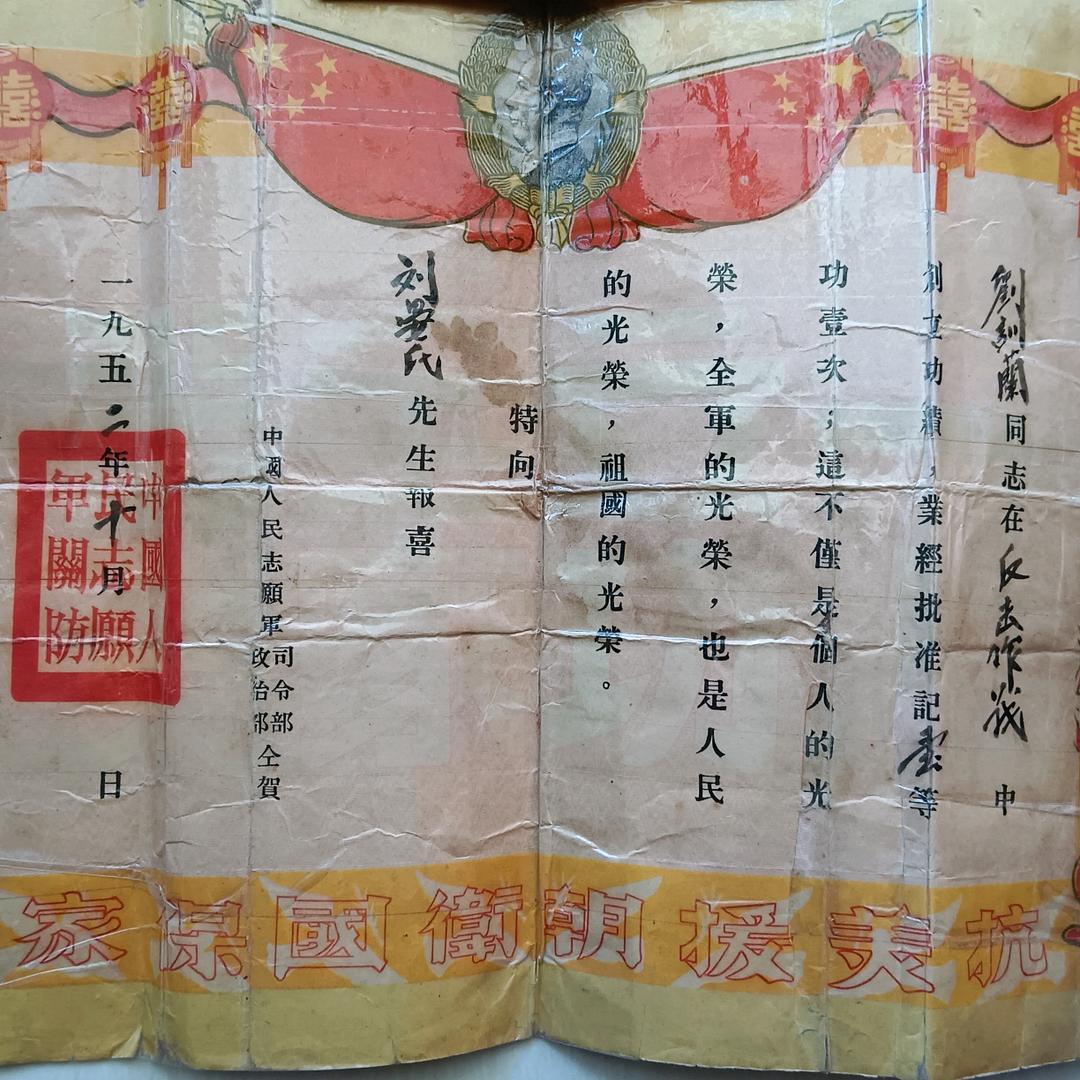 劉訓蘭同志在反击作战中
創立功績，業經批准記壹等
功壹次；這不僅是個人的光
榮，全軍的光榮，也是人民
的光榮，祖國的光榮。
特向
刘氏先生報喜
中國人民志願軍司令部政治部仝賀
一九五二年十月 日
中國人民志願軍關防
抗美援朝衛國保家
囍
囍
囍